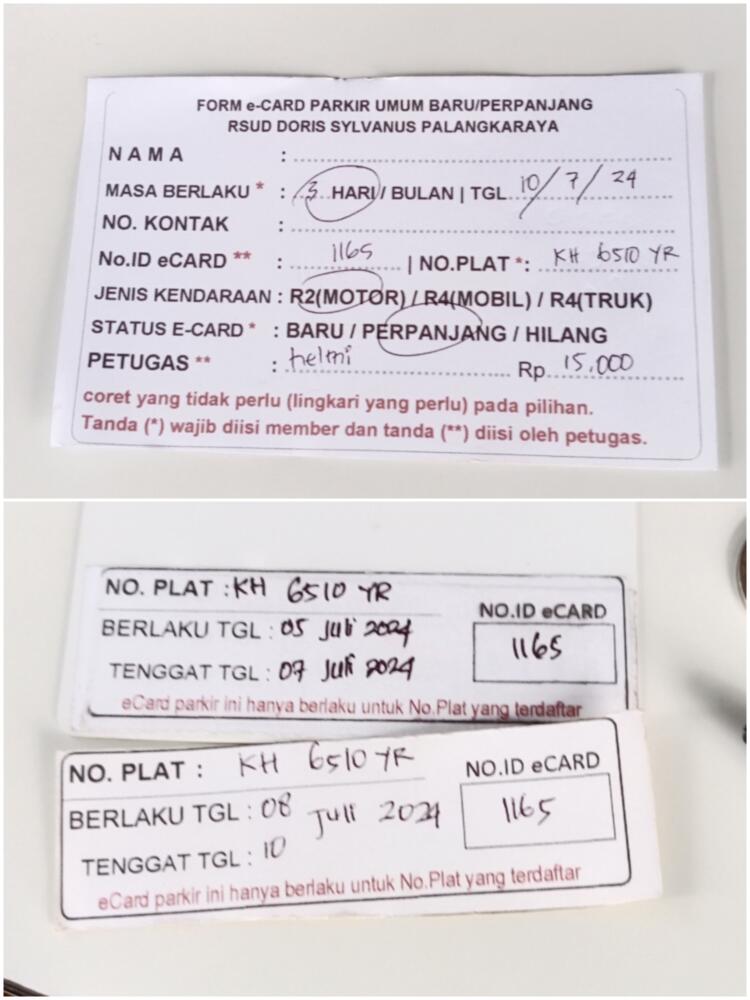 FORM e-CARD PARKIR UMUM BARU/PERPANJANG
RSUD DORIS SYLVANUS PALANGKARAYA
NAMA :
MASA BERLAKU * : 3 HARI / BULAN | TGL 10/7/24
NO. KONTAK :
No.ID eCARD ** : 1165 | NO.PLAT *: KH 6510 YR
JENIS KENDARAAN : R2(MOTOR) / R4(MOBIL) / R4(TRUK)
STATUS E-CARD * : BARU / PERPANJANG / HILANG
PETUGAS ** : helmi Rp. 15.000
coret yang tidak perlu (lingkari yang perlu) pada pilihan.
Tanda (*) wajib diisi member dan tanda (**) diisi oleh petugas.
NO. PLAT : KH 6510 YR
NO.ID eCARD
BERLAKU TGL : 05 Juli 2024
1165
TENGGAT TGL : 07 Juli 2024
eCard parkir ini hanya berlaku untuk No.Plat yang terdaftar
NO. PLAT : KH 6510 YR
NO.ID eCARD
BERLAKU TGL : 08 Juli 2024
1165
TENGGAT TGL : 10
eCard parkir ini hanya berlaku untuk No.Plat yang terdaftar